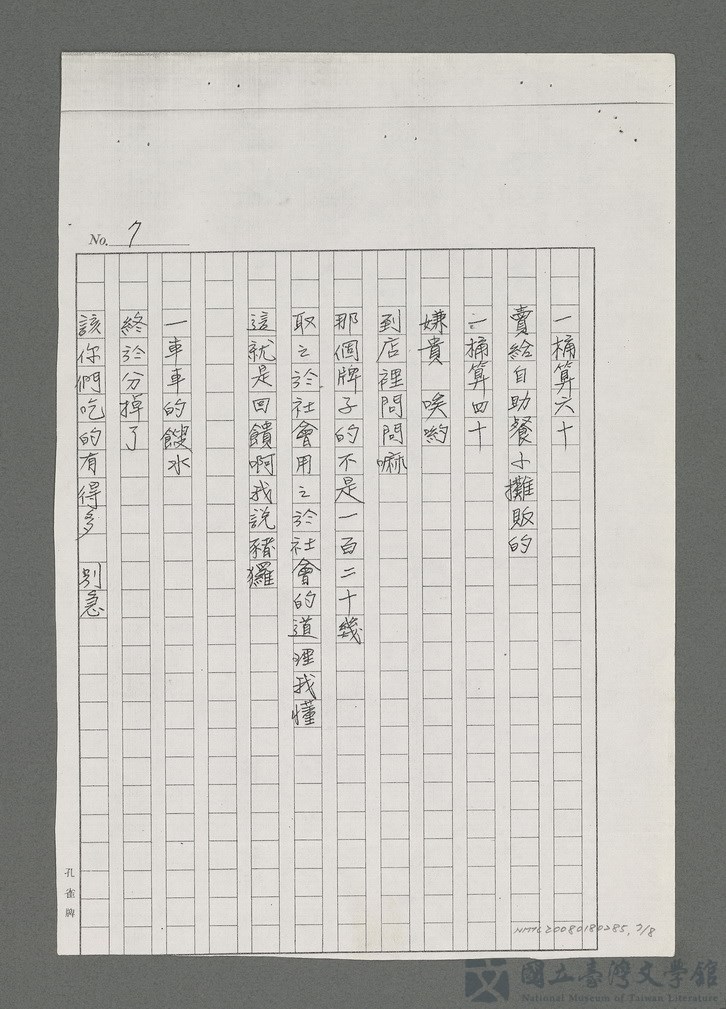 No. 7
一桶算六十
賣給自助餐小攤販的
一桶算四十
嫌貴　唉約
到店裡問問嘛
那個牌子的不是一百二十幾
取之於社會用之於社會的道理我懂
這就是回饋啊我說豬玀
一車車的餿水
終於分掉了
該你們吃的有得多　別急
孔雀牌
NMTL20080180285, 7/8
國立臺灣文學館
National Museum of Taiwan Literature